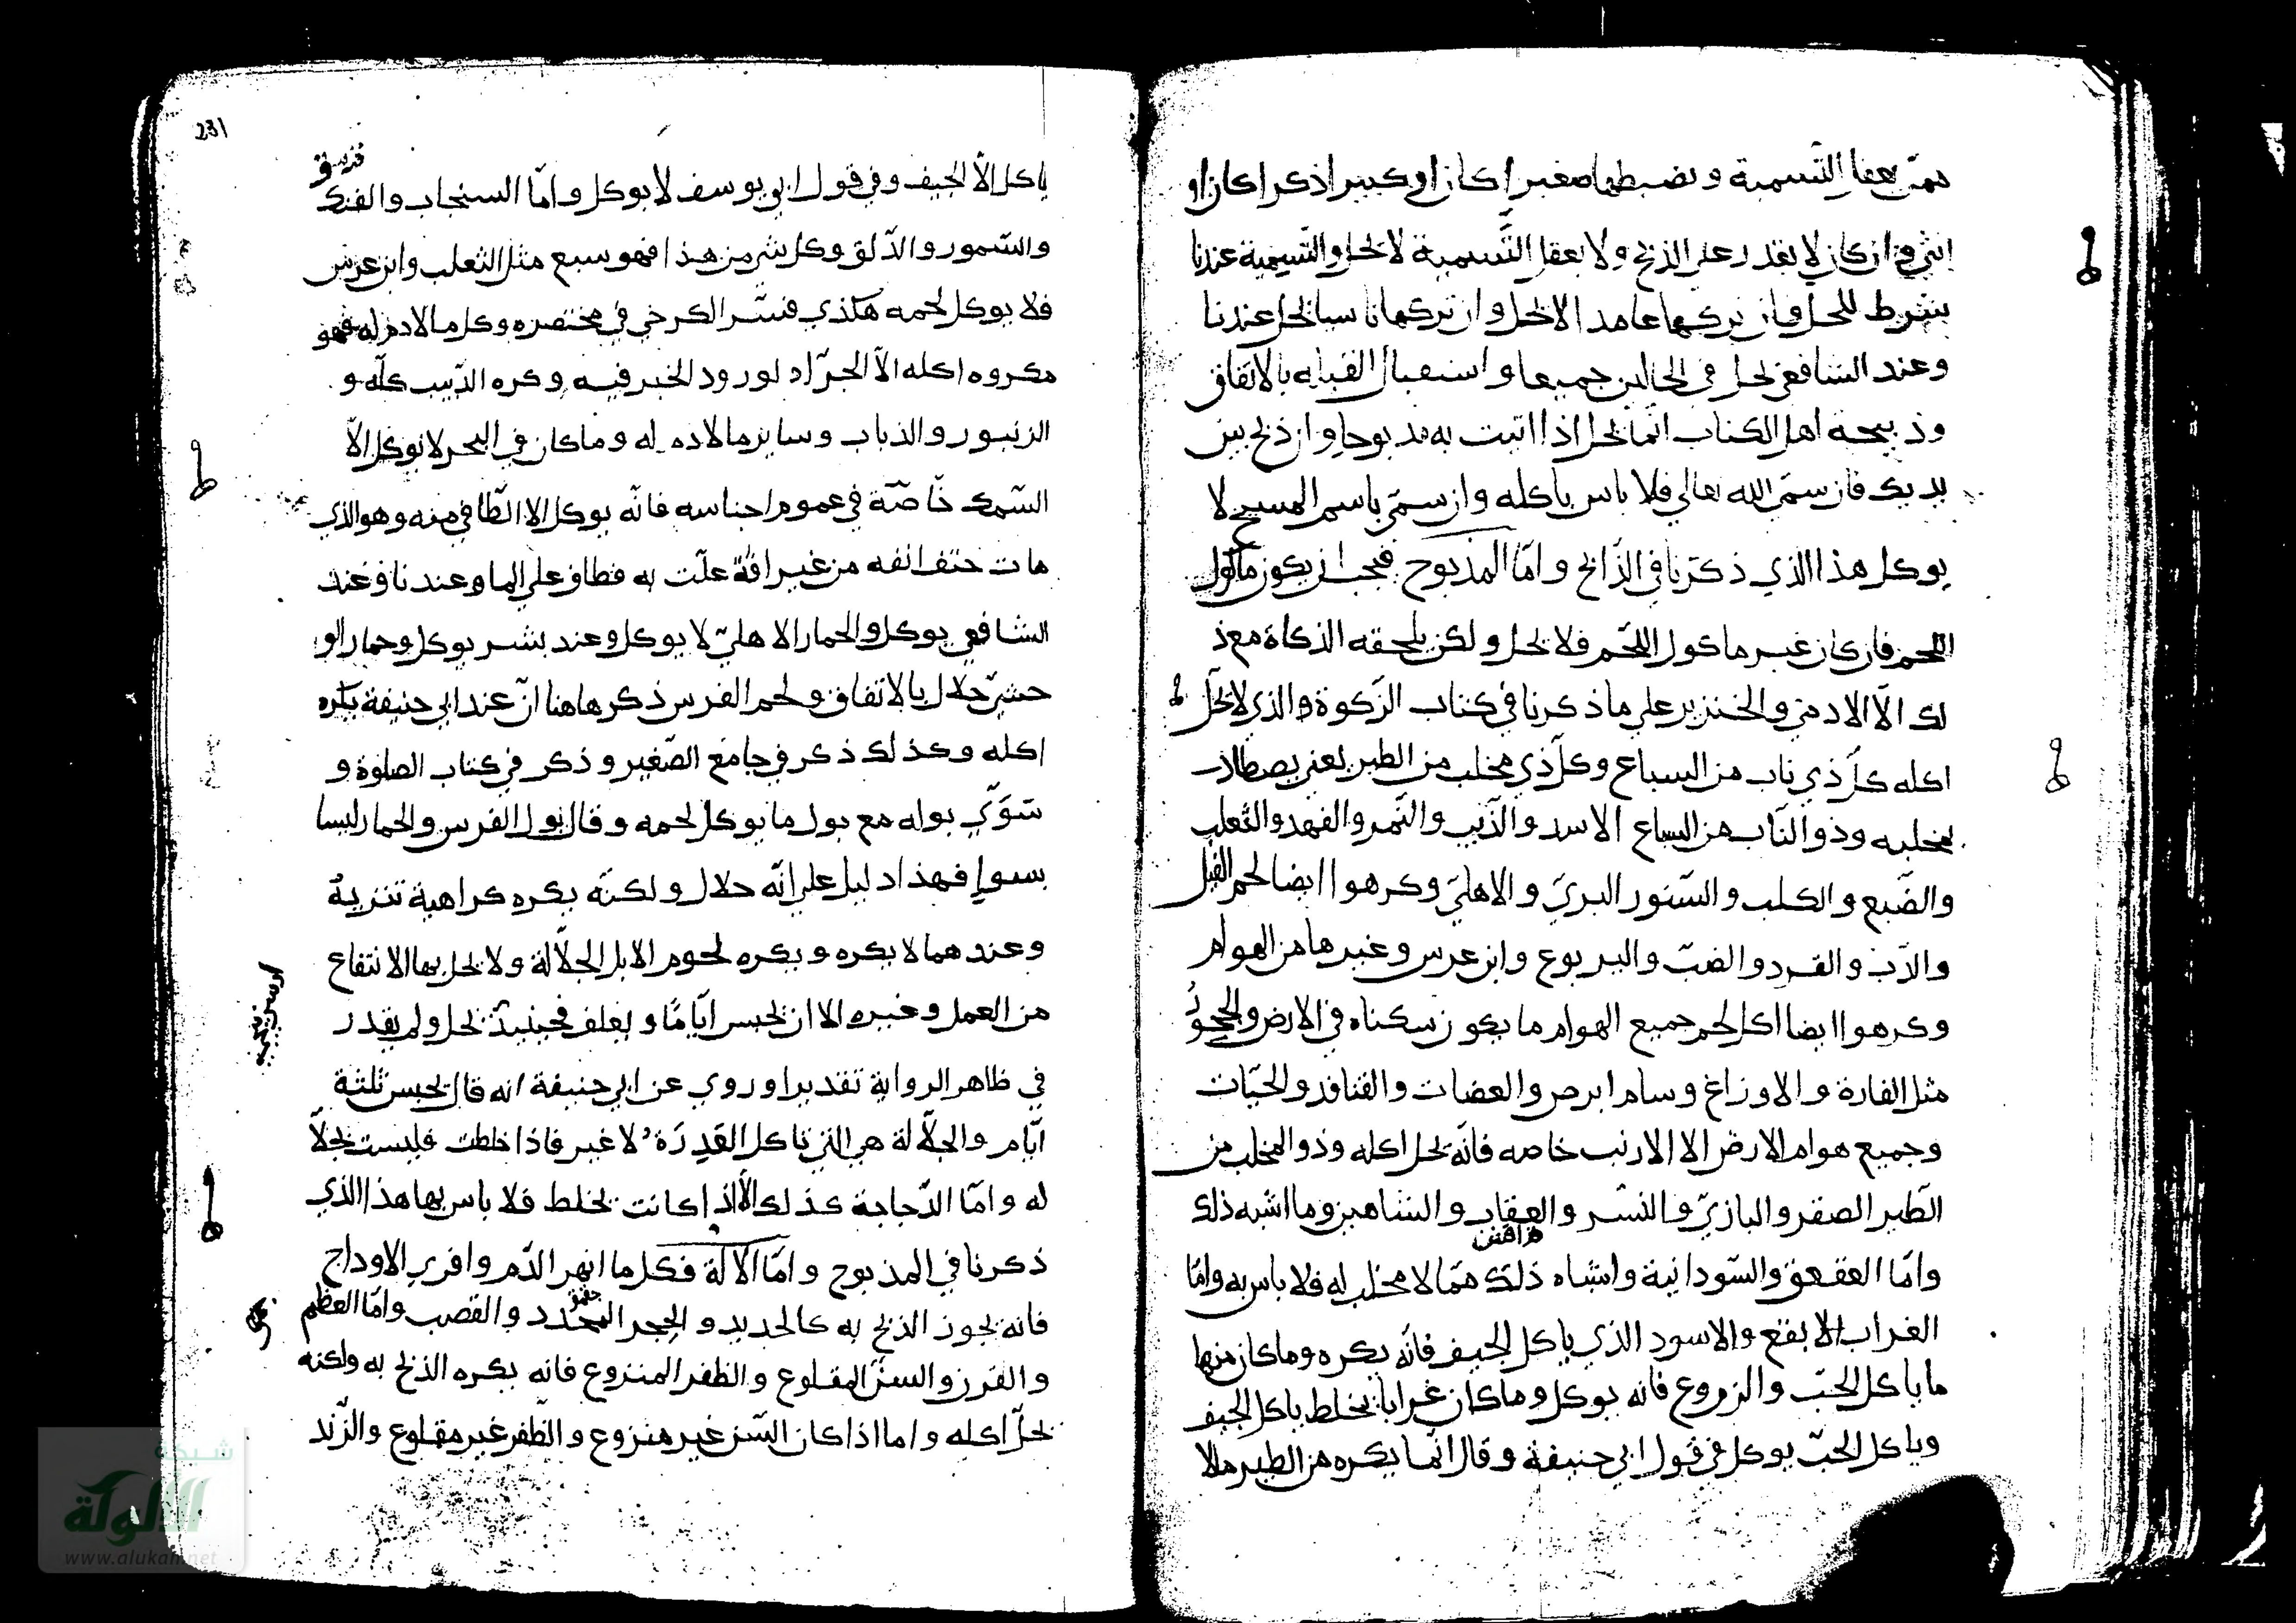 ممّن يعقل التّسمية ويضبطها صغيرا كان او كبيرا ذكرا كان او
انثي فان كان لا يقدر علي الذبح ولا يعقل التّسمية لا تحل والتّسمية عندنا
شرط للحل فان تركها عامدا لا تحل وان تركها ناسيا تحل عندنا
وعند الشافعي تحل في الحالين جميعا واستقبال القبلة بالاتفاق
وذبيحة اهل الكتاب انّما تحل اذا اتيت به مذبوحا وان ذبح بين
يديك فان سمّي الله تعالي فلا باس باكله وان سمّي باسم المسيح لا
يوكل هذا الذي ذكرنا في الذّابح وامّا المذبوح فيجب ان يكون ماكول
اللّحم فان كان غير ماكول اللّحم فلا تحل ولكن يلحقه الذكاة مع ذ
لك الّا الادمي والخنزير علي ما ذكرنا في كتاب الزّكوة والذي لا تحلّ
اكله كلّ ذي ناب من السباع وكلّ ذي مخلب من الطير يعني يصطاد
بمخلبه وذو النّاب من السباع الاسد والذّيب والنّمر والفهد والثّعلب
والضّبع والكلب والسّنور البريّ والاهليّ وكرهوا ايضا لحم الفيل
والدّب والقرد والضبّ واليربوع وابن عرس وغيرها من الهوام
وكرهوا ايضا اكل لحم جميع الهوام ما يكون سكناه في الارض والجحورُ
مثل الفارة والاوزاغ وسام ابرص والعضات والقنافذ والحيّات
وجميع هوام الارض الا الارنب خاصه فانّه يحل اكله وذو المخلب من
الطّير الصقر والبازيّ والنّسر والعقاب والشاهين وما اشبه ذلك
وامّا العقعق والسّودانية واشباه ذلك ممّا لا مخلب له فلا باس به وامّا
الغراب الابقع والاسود الذي ياكل الجيف فانّه يكره وما كان منها
ما ياكل الحبّ والزروع فانه يوكل وما كان غرابا يخلط ياكل الجيف
وياكل الحبّ يوكل في قول ابي حنيفة وقال انّما يكره من الطير ما لا
231
ياكل الّا الجيف وفي قول ابي يوسف لا يوكل وامّا السنجاب والفنك
والسّمور والدّلق وكل شي من هذا فهو سبع مثل الثعلب وابن عرس
فلا يوكل لحمه هكذي فسّر الكرخي في مختصره وكل ما لا دم له فهو
مكروه اكله الّا الجرّاد لورود الخبر فيه وكره الدّبيب كلّه و
الزنبور والذباب وساير ما لا دم له وما كان في البحر لا توكل الّا
السّمك خاصّة في عموم اجناسه فانّه يوكل الا الطّافي منه وهو الذي
مات حتف انفه من غير افة علّت به فطاف علي الما وعندنا وعند
الشافعي يوكل والحمار الاهليّ لا يوكل وعند بشر يوكل وحمار الو
حشيّ حلال بالاتفاق ولحم الفرس ذكر هاهنا انّ عند ابي حنيفة يكره
اكله وكذلك ذكر في جامع الصّغير وذكر في كتاب الصلوة و
سَوّي بوله مع بول ما يوكل لحمه وقال بول الفرس والحمار ليسا
بسواءٍ فهذا دليل علي انّه حلال ولكنّه يكره كراهية تنزيهٌ
وعندهما لا يكره ويكره لحوم الابل الجلّالة ولا تحل بها الانتفاع
من العمل وغيره الا ان تحبس ايّامًا ويعلف فحينيذٍ تحل ولم يقدر
في ظاهر الرواية تقديرا وروي عن ابي حنيفة انه قال تحبس ثلثة
ايّام والجلّالة هي التي تاكل القَذِرَة لا غير فاذا خلطت فليست بجلّا
له وامّا الدّجاجة كذلك الّا اذا كانت تخلط فلا باس بها هذا الذي
ذكرنا في المذبوح وامّا الالة فكل ما انهر الدّم وافري الاوداج
فانه يجوز الذبح به كالحديد والحجر المحدد والقصب وامّا العظم
والقرن والسنّ المقلوع والظفر المنزوع فانه يكره الذبح به ولكنه
تحلّ اكله واما اذا كان السّن غير منزوع والظّفر غير مقلوع والزّند
شبكة
الألوكة
www.alukah.net